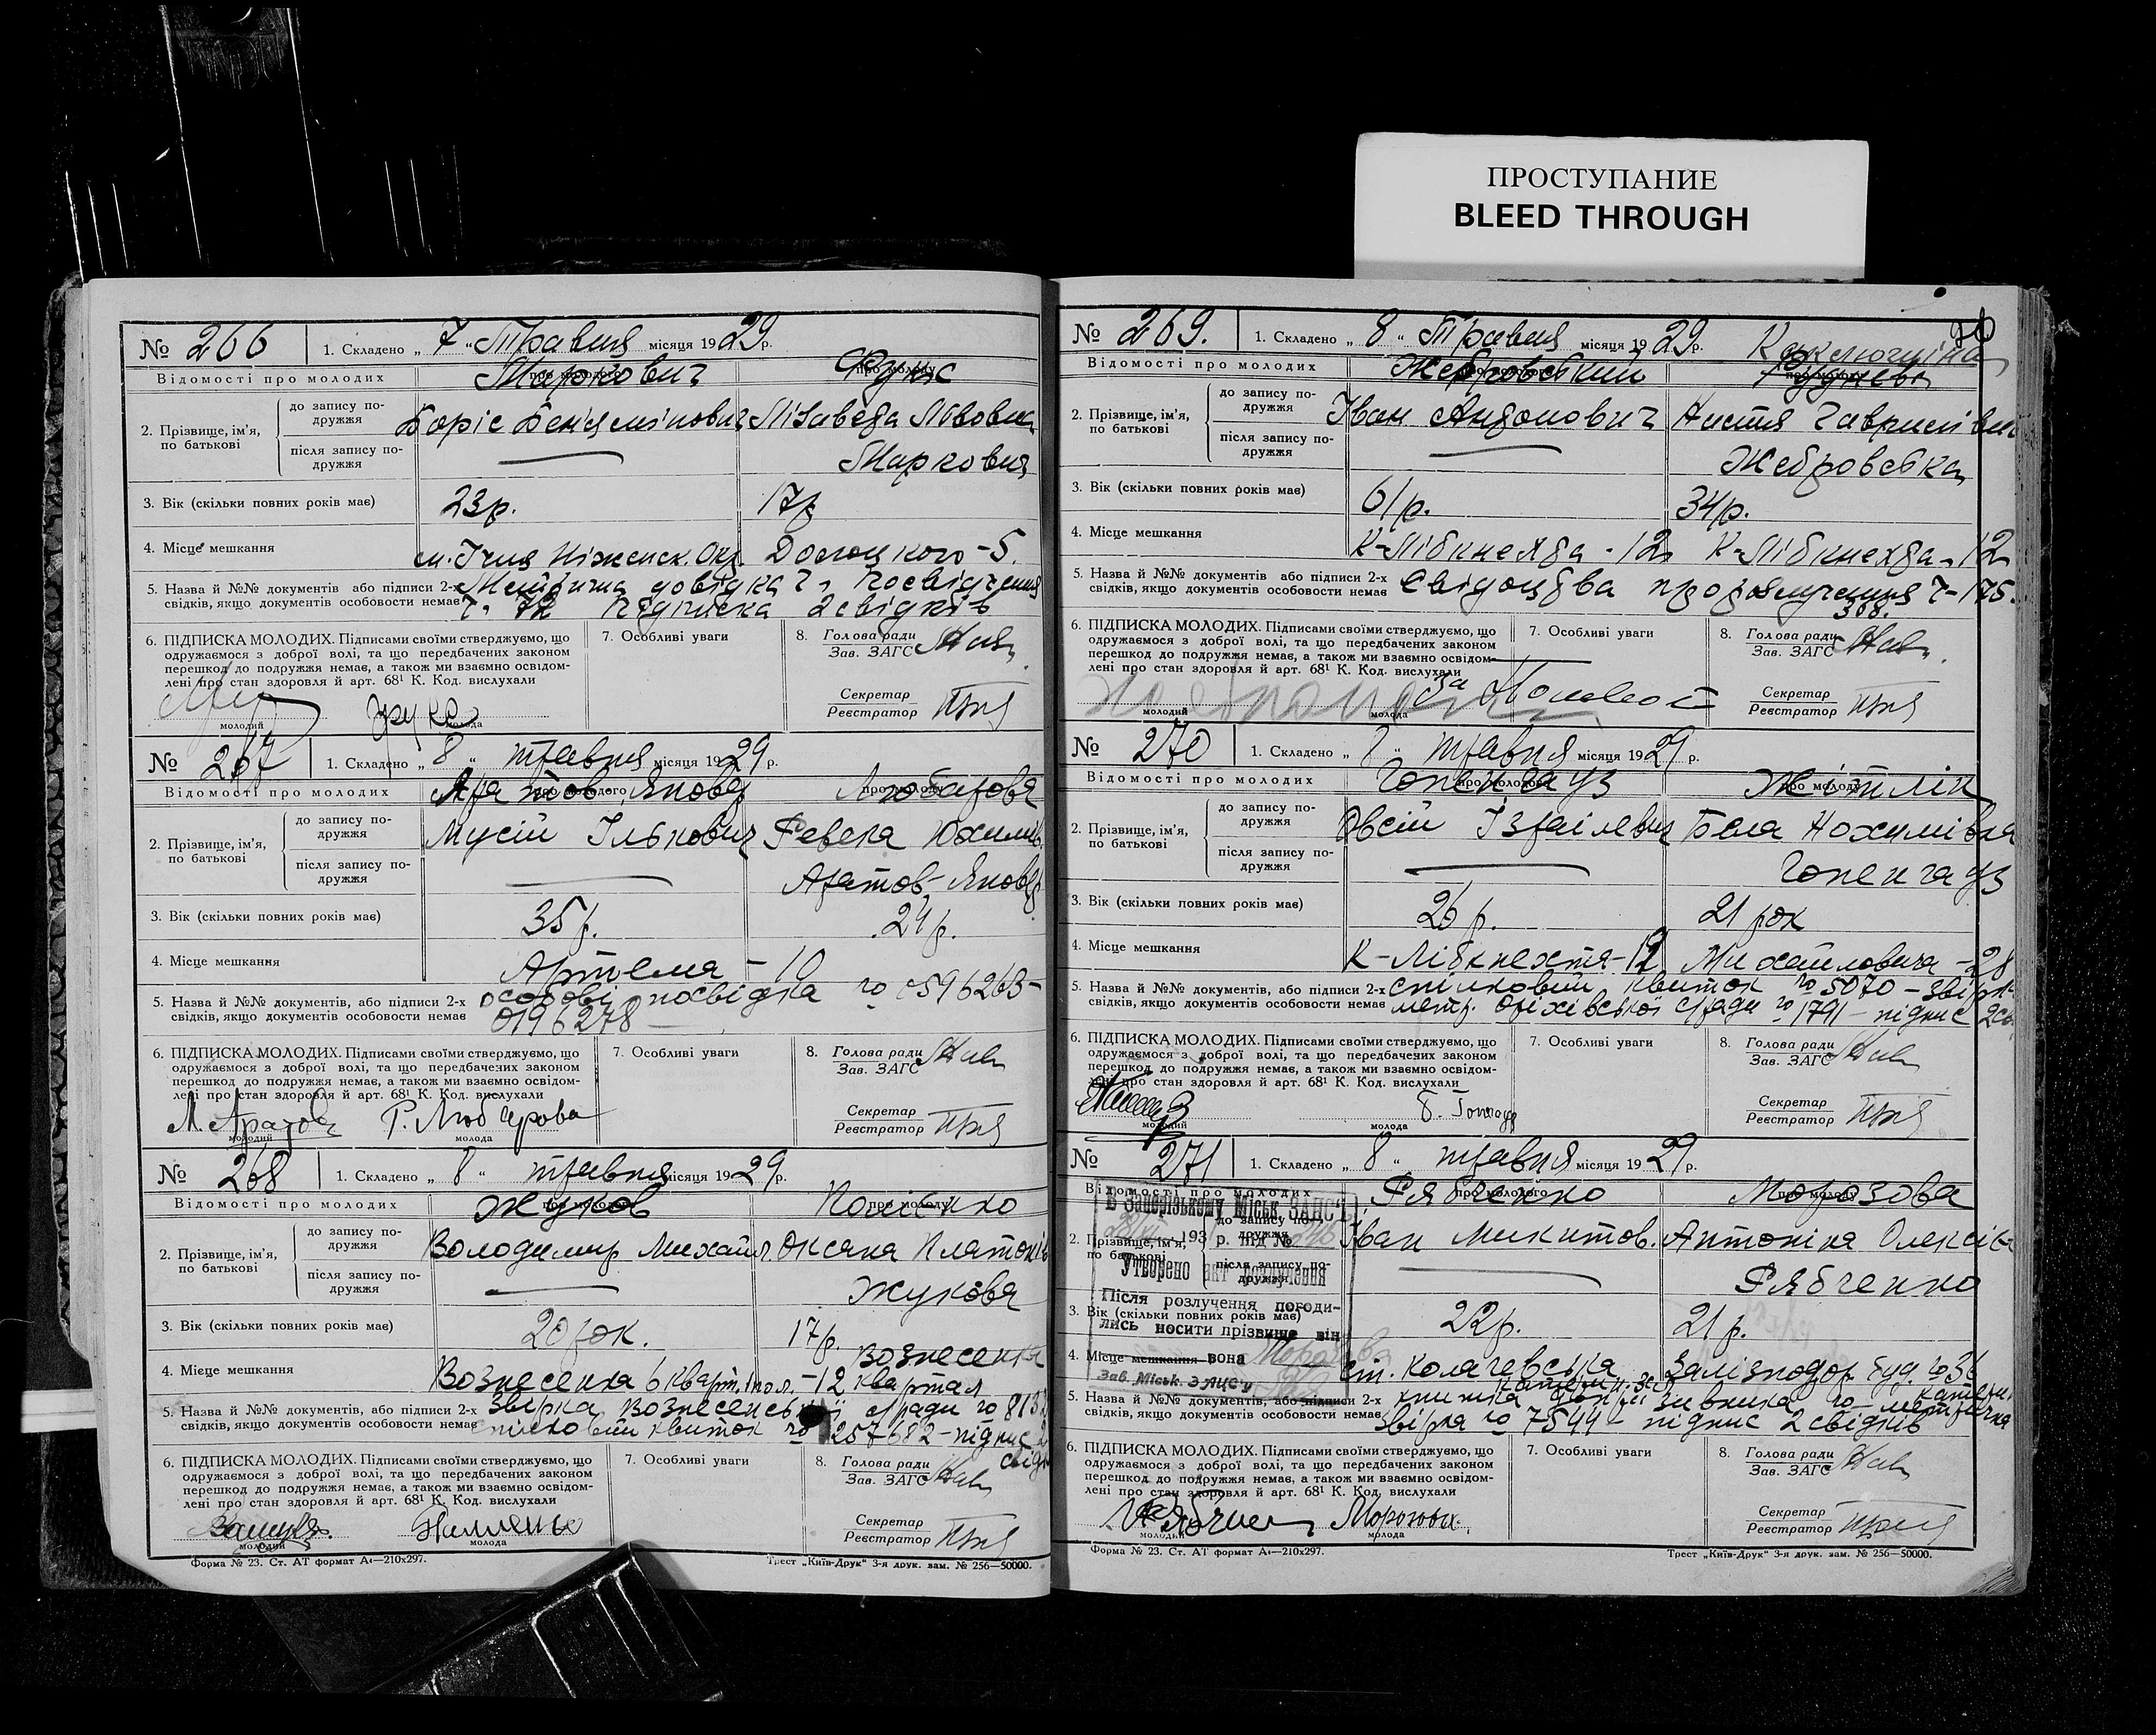 ПРОСТУПАНИЕ
BLEED THROUGH
№ 266 1. Складено „ 7 “ Травня місяця 1929 р.
Відомості про молодих про молодого про молоду
Маркович
2. Прізвище, ім'я, по батькові
до запису по-
дружжя
Боріс Бен'ямінович Лізавета Львовна
після запису по-
дружжя
— Маркович
3. Вік (скільки повних років має) 23 р. 17 р
4. Місце мешкання м. Ічня Ніженск. Окр. -5.
5. Назва й №№ документів або підписи 2-х Метрична довідка Посвідчення
свідків, якщо документів особовости немає 72 Підписка 2 свідків
6. ПІДПИСКА МОЛОДИХ. Підписами своїми стверджуємо, що
одружаємося з доброї волі, та що передбачених законом
перешкод до подружжя немає, а також ми взаємно освідом-
лені про стан здоровля й арт. 68¹ К. Код. вислухали
молодий молода
7. Особливі уваги
8. Голова ради
Зав. ЗАГС
Секретар
Реєстратор
№ 267 1. Складено „ 8 “ травня місяця 1929 р.
Відомості про молодих про молодого про молоду
Аратов-Яновер Любарова
2. Прізвище, ім'я, по батькові
до запису по-
дружжя
Мусій Ількович Ревека Юхимів.
після запису по-
дружжя
— Аратов-Яновер
3. Вік (скільки повних років має) 35 р. 24 р.
4. Місце мешкання Артема - 10
5. Назва й №№ документів, або підписи 2-х особові посвідка № 0596263-
свідків, якщо документів особовости немає 0196278 —
6. ПІДПИСКА МОЛОДИХ. Підписами своїми стверджуємо, що
одружаємося з доброї волі, та що передбачених законом
перешкод до подружжя немає, а також ми взаємно освідом-
лені про стан здоровля й арт. 68¹ К. Код. вислухали
М. Аратов Р. Любарова
молодий молода
7. Особливі уваги
8. Голова ради
Зав. ЗАГС
Секретар
Реєстратор
№ 268 1. Складено „ 8 “ травня місяця 1929 р.
Відомості про молодих про молодого про молоду
Жуков
2. Прізвище, ім'я, по батькові
до запису по-
дружжя
Володимир Михайл. Оксана Платонів
після запису по-
дружжя
— Жукова
3. Вік (скільки повних років має) 20 рок. 17 р.
Вознесенка
4. Місце мешкання Вознесенка 6 кварт. - 12 квартал
5. Назва й №№ документів, або підписи 2-х звірка Вознесенської с/ради № 813
свідків, якщо документів особовости немає спілковий квиток № 257682 - підпис 2
свідк
6. ПІДПИСКА МОЛОДИХ. Підписами своїми стверджуємо, що
одружаємося з доброї волі, та що передбачених законом
перешкод до подружжя немає, а також ми взаємно освідом-
лені про стан здоровля й арт. 68¹ К. Код. вислухали
молодий молода
7. Особливі уваги
8. Голова ради
Зав. ЗАГС
Секретар
Реєстратор
Форма № 23. Ст. АТ формат А₄—210х297. Трест „Київ-Друк“ 3-я друк. зам. № 256—50000.
№ 269. 1. Складено „ 8 “ Травня місяця 1929 р.
Відомості про молодих про молодого про молоду
Жебровський
2. Прізвище, ім'я, по батькові
до запису по-
дружжя
Іван Антонович Настя Гаврилівна
після запису по-
дружжя
— Жебровська
3. Вік (скільки повних років має) 61 р. 34 р.
4. Місце мешкання К-Лібкнехта - 12 К-Лібкнехта - 12
5. Назва й №№ документів або підписи 2-х Свідоцтва про розлучення Ч-175.
свідків, якщо документів особовости немає 368.
6. ПІДПИСКА МОЛОДИХ. Підписами своїми стверджуємо, що
одружаємося з доброї волі, та що передбачених законом
перешкод до подружжя немає, а також ми взаємно освідом-
лені про стан здоровля й арт. 68¹ К. Код. вислухали
молодий молода
7. Особливі уваги
8. Голова ради
Зав. ЗАГС
Секретар
Реєстратор
№ 270 1. Складено „ 8 “ травня місяця 1929 р.
Відомості про молодих про молодого про молоду
Гопенгауз Житлін
2. Прізвище, ім'я, по батькові
до запису по-
дружжя
Овсій Ізраілевич Бела Нохимівна
після запису по-
дружжя
— Гопенгауз
3. Вік (скільки повних років має) 26 р. 21 рок
4. Місце мешкання К-Лібкнехта-12 Михайловича -28
5. Назва й №№ документів, або підписи 2-х спілковий квиток № 5070 - звірк-
свідків, якщо документів особовости немає метр. Оріхівської с/ради № 1791 - підпис 2 св.
6. ПІДПИСКА МОЛОДИХ. Підписами своїми стверджуємо, що
одружаємося з доброї волі, та що передбачених законом
перешкод до подружжя немає, а також ми взаємно освідом-
лені про стан здоровля й арт. 68¹ К. Код. вислухали
молодий молода
7. Особливі уваги
8. Голова ради
Зав. ЗАГС
Секретар
Реєстратор
№ 271 1. Складено „ 8 “ травня місяця 1929 р.
Відомості про молодих про молодого про молоду
Рябченко Морозова
В Запорізькому Міськ. ЗАНСі
193 р. під №
Утворено акт розлучення
Після розлучення погоди-
лись носити прізвище він
вона Морозова
Зав. Міськ. ЗАЦСу
2. Прізвище, ім'я, по батькові
до запису по-
дружжя
Іван Микитов. Антоніна Олексіїв
після запису по-
дружжя
— Рябченко
3. Вік (скільки повних років має) 22 р. 21 р.
4. Місце мешкання ст. Колачевська Залізнодор. буд. № 36
5. Назва й №№ документів, або підписи 2-х книжка № метрична
свідків, якщо документів особовости немає звірка № 7544 - підпис 2 свідків
6. ПІДПИСКА МОЛОДИХ. Підписами своїми стверджуємо, що
одружаємося з доброї волі, та що передбачених законом
перешкод до подружжя немає, а також ми взаємно освідом-
лені про стан здоровля й арт. 68¹ К. Код. вислухали
Морозова
молодий молода
7. Особливі уваги
8. Голова ради
Зав. ЗАГС
Секретар
Реєстратор
Форма № 23. Ст. АТ формат А₄—210х297. Трест „Київ-Друк“ 3-я друк. зам. № 256—50000.